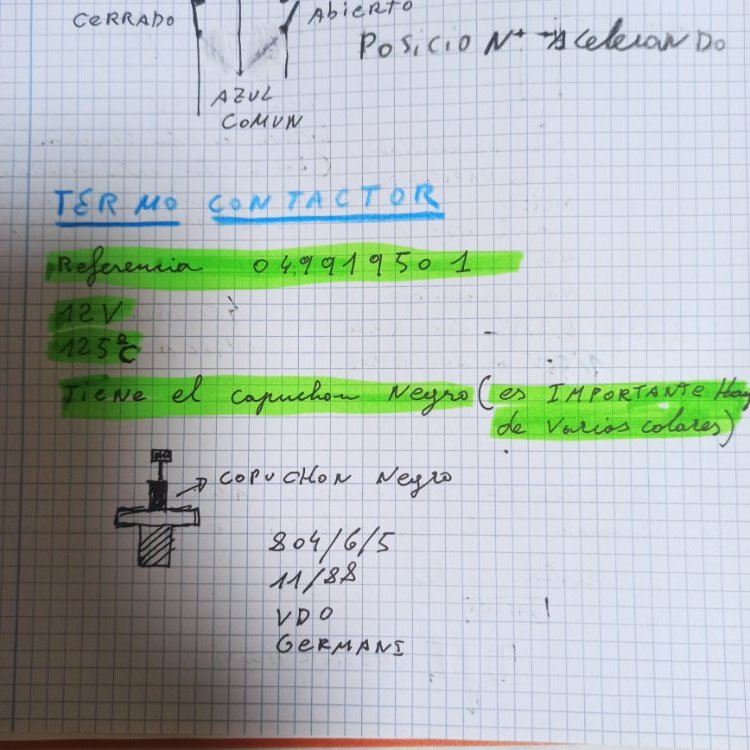 CERRADO
Abierto
POSICION + Acelerando
AZUL
COMUN
TERMO CONTACTOR
Referencia 049919501
12V
125ºC
Tiene el capuchon Negro (es IMPORTANTE Hay
de varios colores)
COPUCHON Negro
804/6/5
11/88
VDO
GERMANI